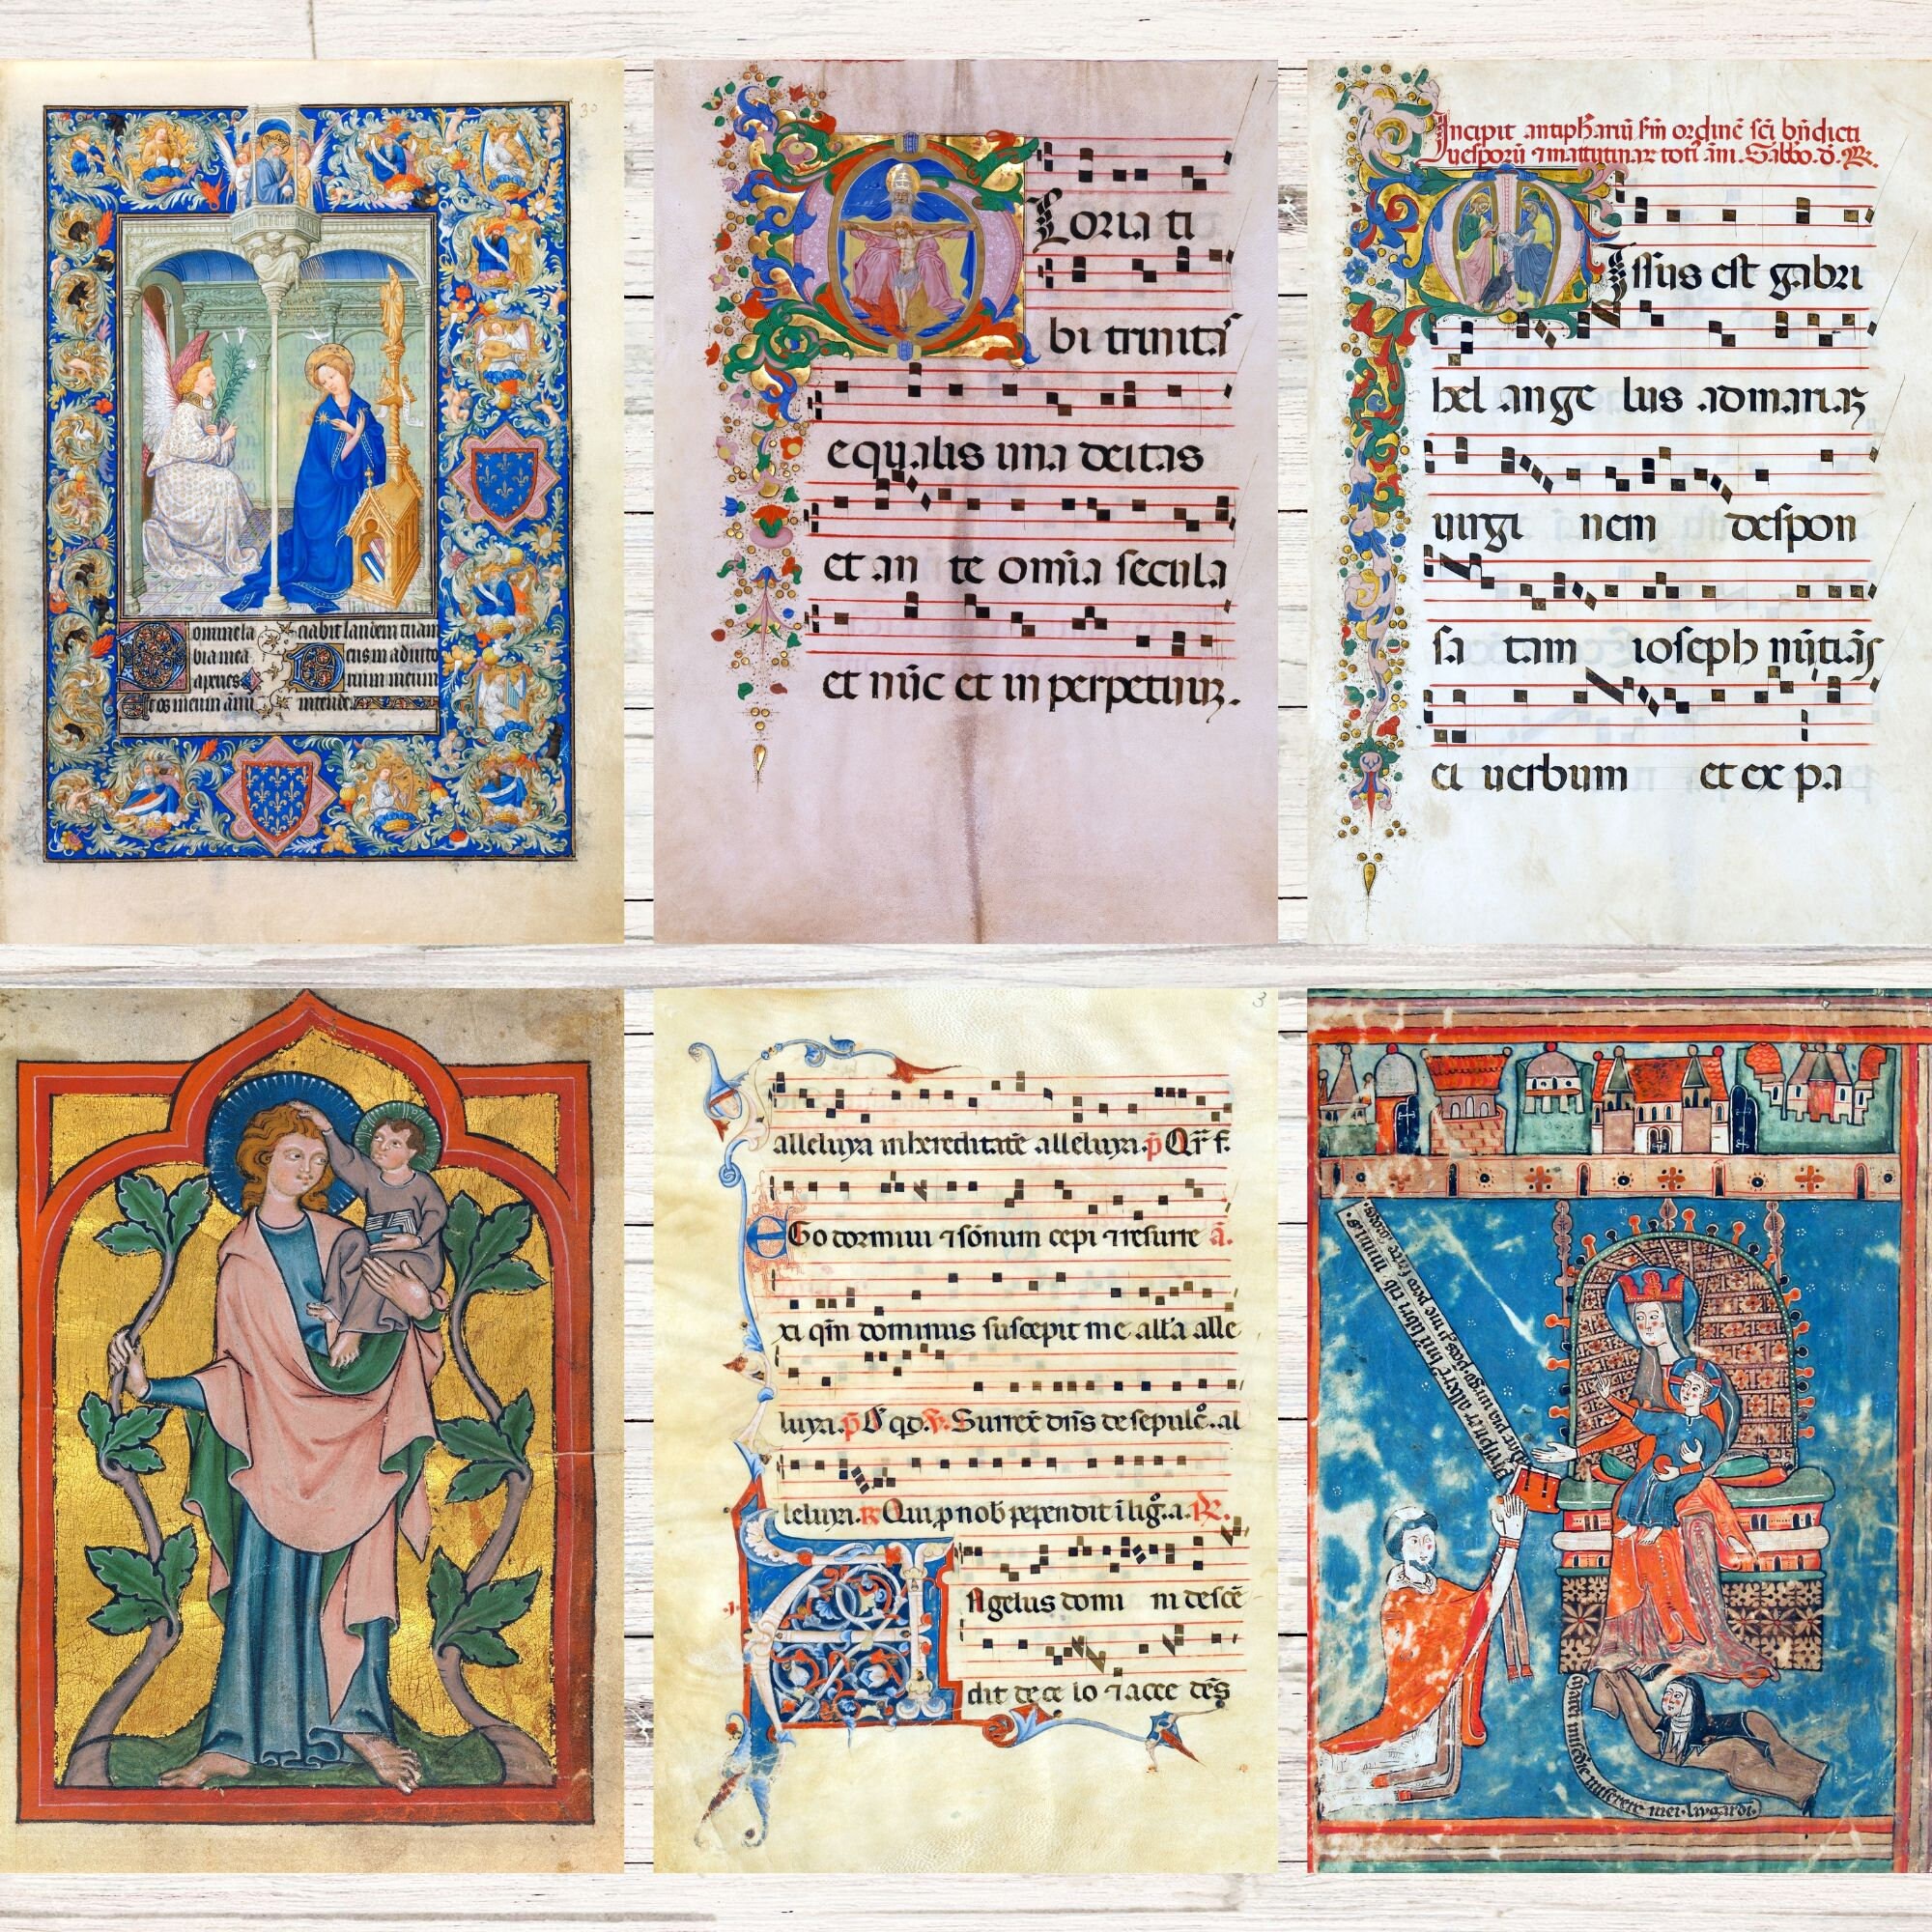 30
omine la
bia mea
aperies
Et os meum ānū
ciabit laudem tuam
eus in adiuto
rium meum
intende
Loria ti
bi trinitas
equalis una deitas
et an te omīa secula
et nūc et in perpetuuʒ.
Incipit antiphariū sm ordinē sci bn̄dicti
uesporū ⁊ mattutinaꝝ totī ani. Sabbo. d. R.
Issus est gabri
hel ange lus ad mariaʒ
uirgi nem despon
sa tam ioseph nūtiās
ei uerbum et ex pa
3
alleluya in hereditatē alleluya. p̄ Qr̄ f.
EGo dormiui ⁊ sōnum cepi ⁊ resurre ā.
xi qm̄ dominus suscepit me all'a alle
luya. p̄ D qd. v. Surrex̄ dn̄s de sepulc̄. al
leluya. R Qui p nob pependit ī lig. a. R.
Agelus domi ni descē
dit de ce lo ⁊ acce dēs
mei miserere mei lugardi.